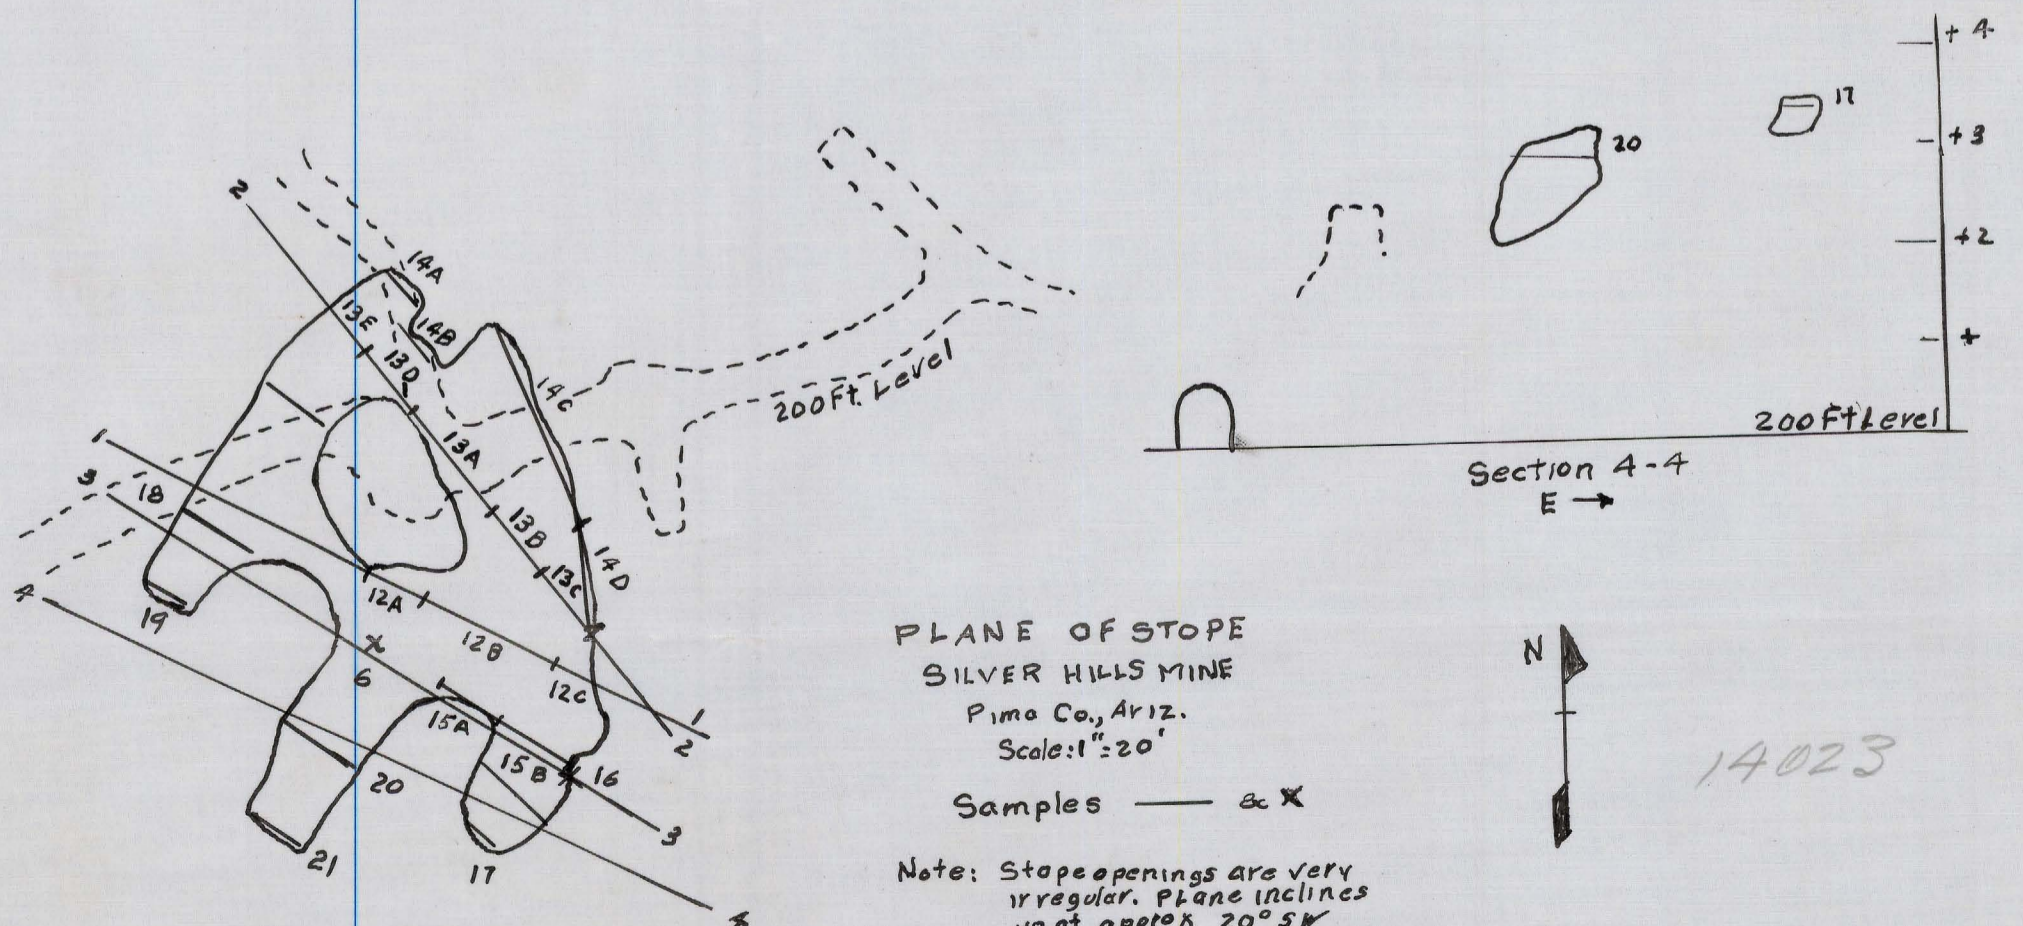 2
14A
13E
14B
13D
14C
13A
200 Ft. Level
1
3
18
13B
14D
13C
4
19
12A
12B
6
12C
1
2
15A
15B
16
20
3
21
17
+4
17
+3
20
+2
+
200 Ft Level
Section 4-4
E →
PLANE OF STOPE
SILVER HILLS MINE
Pima Co., Ariz.
Scale: 1"=20'
Samples —— & X
N
14023
Note: Stope openings are very
irregular. Plane inclines
approx. 20° SW